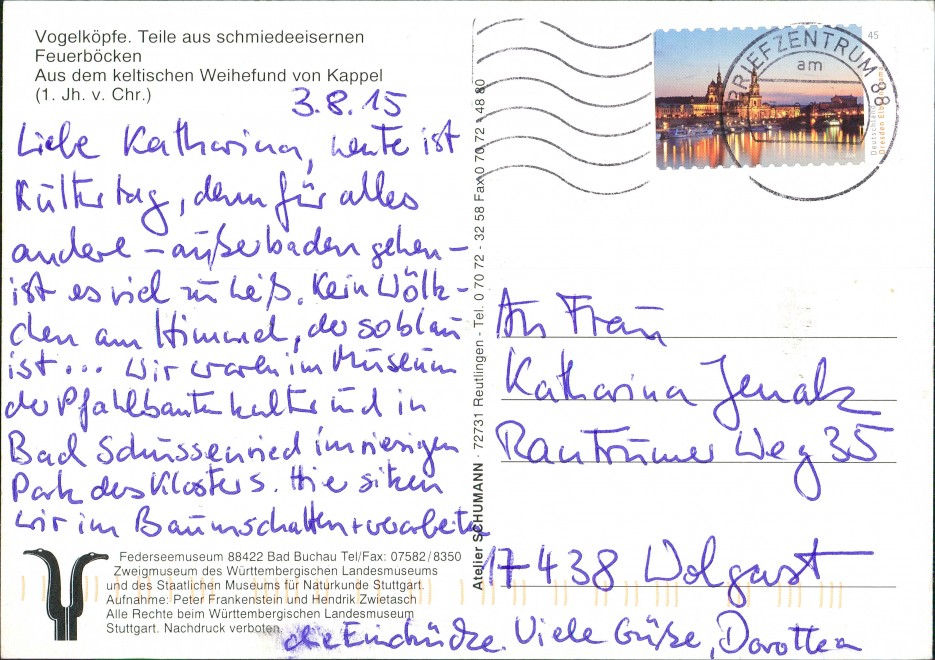 Vogelköpfe. Teile aus schmiedeeisernen
Feuerböcken
Aus dem keltischen Weihefund von Kappel
(1. Jh. v. Chr.)
3.8.15
Liebe Katharina, heute ist
Kulturtag, denn für alles
andere – außer baden gehen –
ist es viel zu heiß. Kein Wölk-
chen am Himmel, der so blau
ist... Wir waren im Museum
der Pfahlbautenkultur und in
Bad Schussenried im riesigen
Park des Klosters. Hier sitzen
wir im Baumschatten + verarbeiten
die Eindrücke. Viele Grüße, Dorothea
Federseemuseum 88422 Bad Buchau Tel/Fax: 07582/8350
Zweigmuseum des Württembergischen Landesmuseums
und des Staatlichen Museums für Naturkunde Stuttgart.
Aufnahme: Peter Frankenstein und Hendrik Zwietasch
Alle Rechte beim Württembergischen Landesmuseum
Stuttgart. Nachdruck verboten.
Atelier SCHUMANN · 72731 Reutlingen · Tel. 0 70 72 - 32 58 Fax 0 70 72 - 48 80
BRIEFZENTRUM 88
am
45
Deutschland
An Frau
Katharina
Weg 35
17438 Wolgast